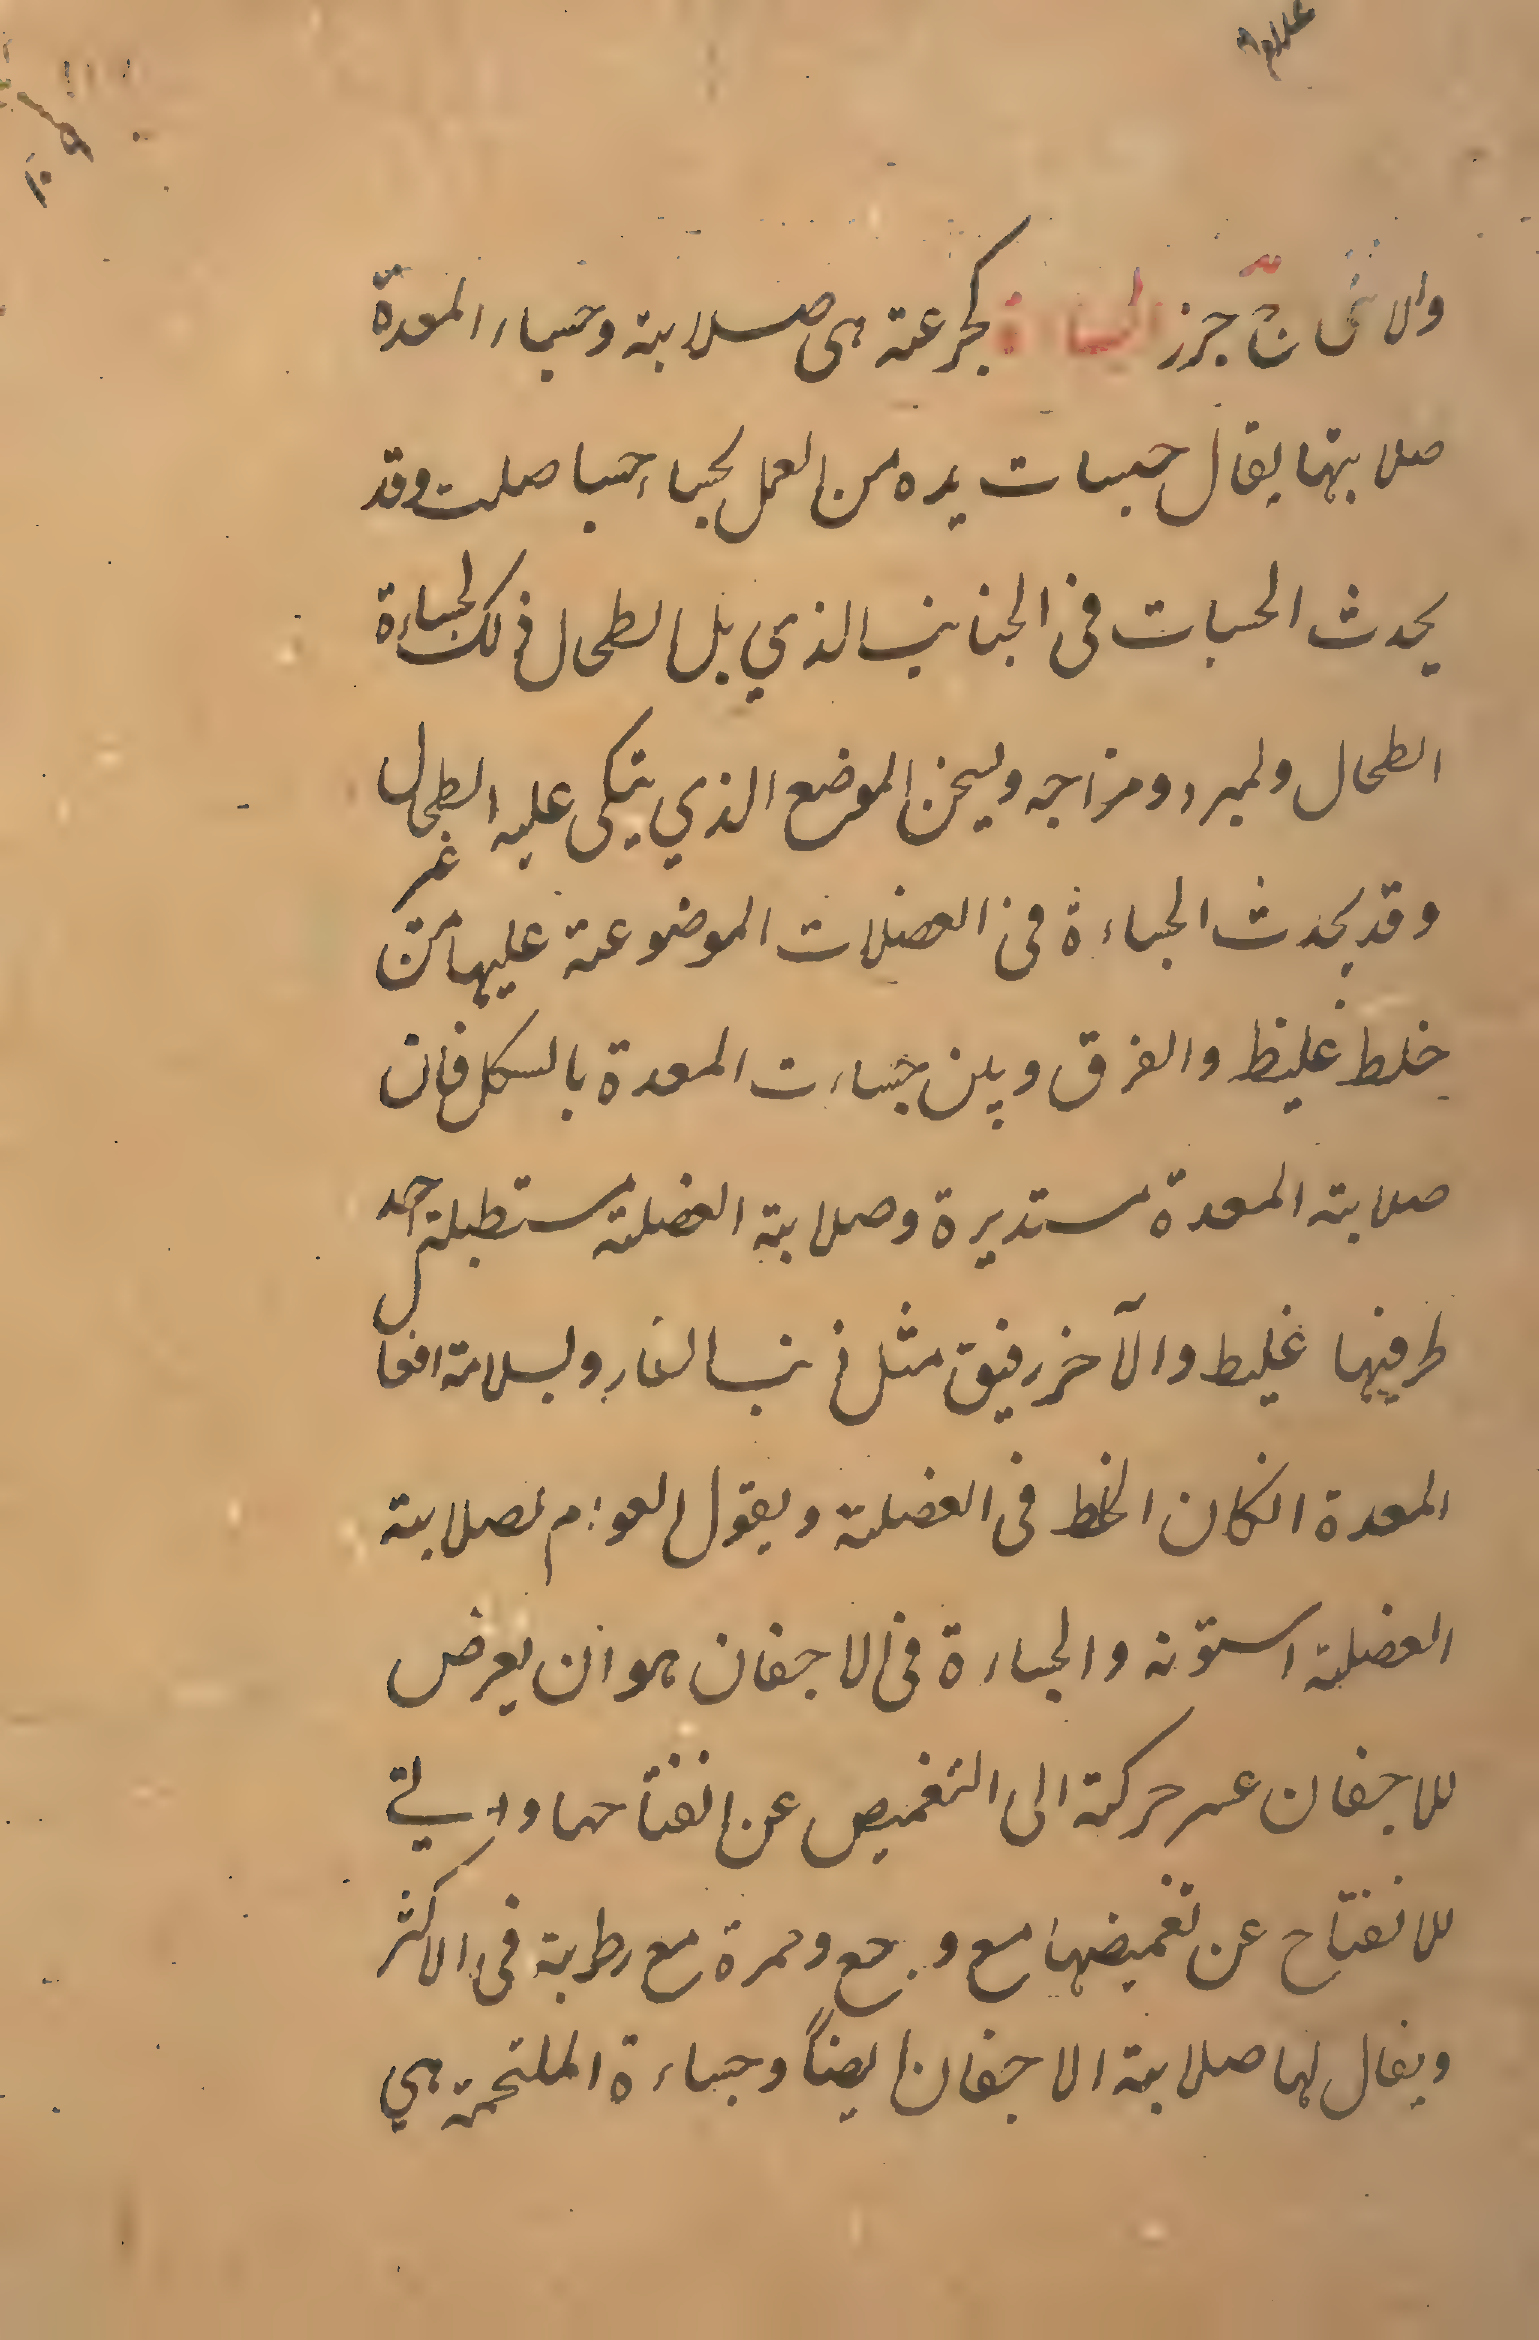 والا جرز الجساءة كجرعته هى صلابته وجساء المعدة
صلابتها يقال جسات يده من العمل يجساء جسا صلبت وقد
يحدث الجسات فى الجانب الذي يلى الطحال فذلك لجساءة
الطحال ولمبرد ومزاجه وليسخن الموضع الذي يتكى عليه الطحال
وقد يحدث الجساءة فى العضلات الموضوعة عليها من غير
خلط غليظ والفرق وبين جساءت المعدة بالسكل فان
صلابته المعدة مستديرة وصلابته العضلته مستطيلة احد
طرفيها غليط والآخر رقيق مثل ذنب الفار ولسلامة افعال
المعدة انكان الخلط فى العضلته ويقول العوام لصلابته
العضلته استونه والجساءة فى الاجفان هو ان يعرض
للاجفان عسر حركته الى التغميص عن انفتاحها والى
للانفتاح عن تغميضها مع وجع وحمرة مع رطبته فى الاكثر
ويقال لها صلابته الاجفان ايضاً وجساءة الملتحمة هي